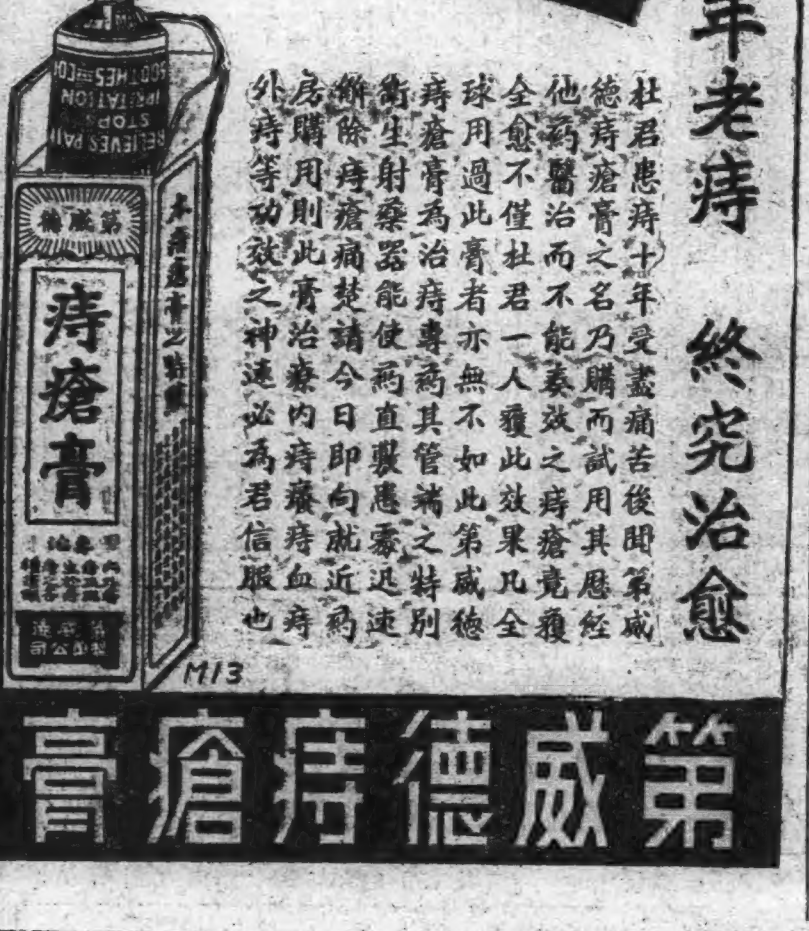 年老痔 終究治愈
杜君患痔十年受盡痛苦後聞第威
德痔瘡膏之名乃購而試用其歷經
他葯醫治而不能奏效之痔瘡竟獲
全愈不僅杜君一人獲此效果凡全
球用過此膏者亦無不如此第威德
痔瘡膏爲治痔專葯其管端之特別
衛生射藥器能使葯直敷患處迅速
解除痔瘡痛楚請今日即向就近葯
房購用則此膏治療內痔癢痔血痔
外痔等功效之神速必爲君信服也
RELIEVES PAIN
STOPS
IRRITATION
SOOTHES
第威德
痔瘡膏
本痔瘡膏之特
M13
第威德痔瘡膏